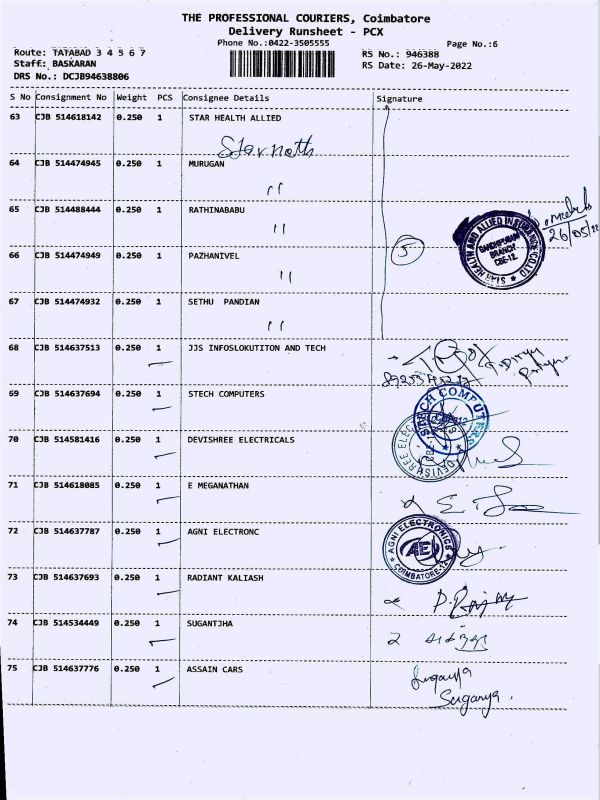 THE PROFESSIONAL COURIERS, Coimbatore
Delivery Runsheet - PCX
Phone No.:0422-3505555
Page No.:6
Route: TATABAD 3 4 5 6 7
RS No.: 946388
Staff: BASKARAN
RS Date: 26-May-2022
DRS No.: DCJB94638806
S No Consignment No Weight PCS Consignee Details Signature
63 CJB 514618142 0.250 1 STAR HEALTH ALLIED
64 CJB 514474945 0.250 1 MURUGAN
65 CJB 514488444 0.250 1 RATHINABABU
26/05/22
5
STAR HEALTH AND ALLIED INSURANCE CO LTD
GANDHIPURAM
BRANCH
CBE-12.
66 CJB 514474949 0.250 1 PAZHANIVEL
67 CJB 514474932 0.250 1 SETHU PANDIAN
68 CJB 514637513 0.250 1 JJS INFOSLOKUTITON AND TECH
69 CJB 514637694 0.250 1 STECH COMPUTERS
STECH COMPUTERS
70 CJB 514581416 0.250 1 DEVISHREE ELECTRICALS
71 CJB 514618085 0.250 1 E MEGANATHAN
72 CJB 514637787 0.250 1 AGNI ELECTRONC
AGNI ELECTRONICS
AE
COIMBATORE-12
73 CJB 514637693 0.250 1 RADIANT KALIASH
74 CJB 514534449 0.250 1 SUGANTJHA
75 CJB 514637776 0.250 1 ASSAIN CARS
Suganya
Suganya.